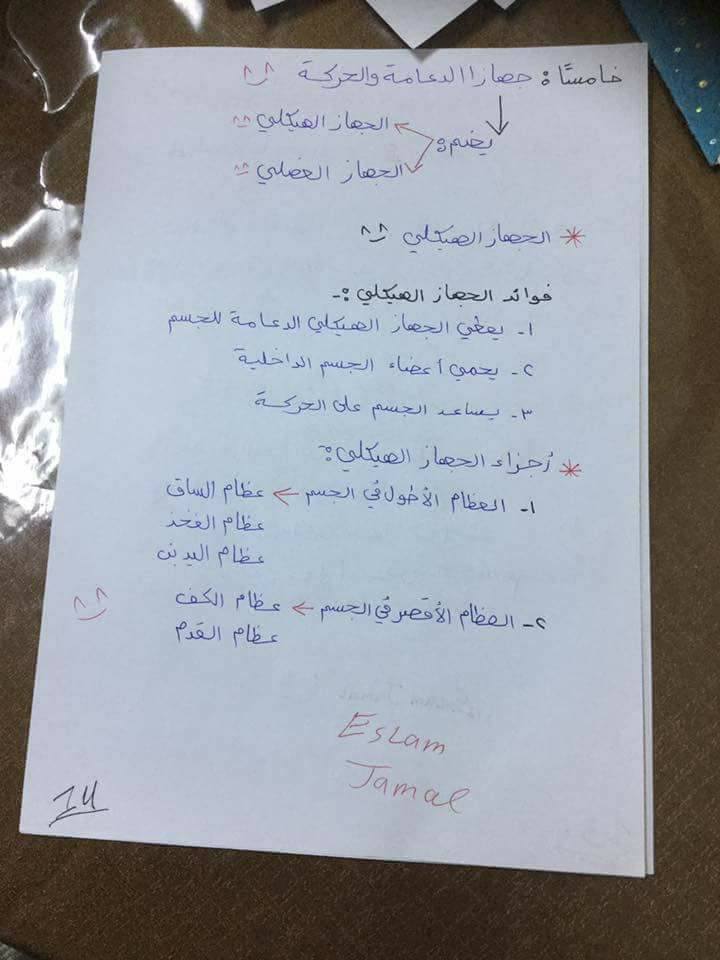 خامسًا: جهازا الدعامة والحركة
يضم:
الجهاز الهيكلي
الجهاز العضلي
* الجهاز الهيكلي
فوائد الجهاز الهيكلي :-
١- يعطي الجهاز الهيكلي الدعامة للجسم
٢- يحمي أعضاء الجسم الداخلية
٣- يساعد الجسم على الحركة
* أجزاء الجهاز الهيكلي:
١- العظام الأطول في الجسم ← عظام الساق
عظام الفخذ
عظام اليدين
٢- العظام الأقصر في الجسم ← عظام الكف
عظام القدم
Eslam
Jamal
14